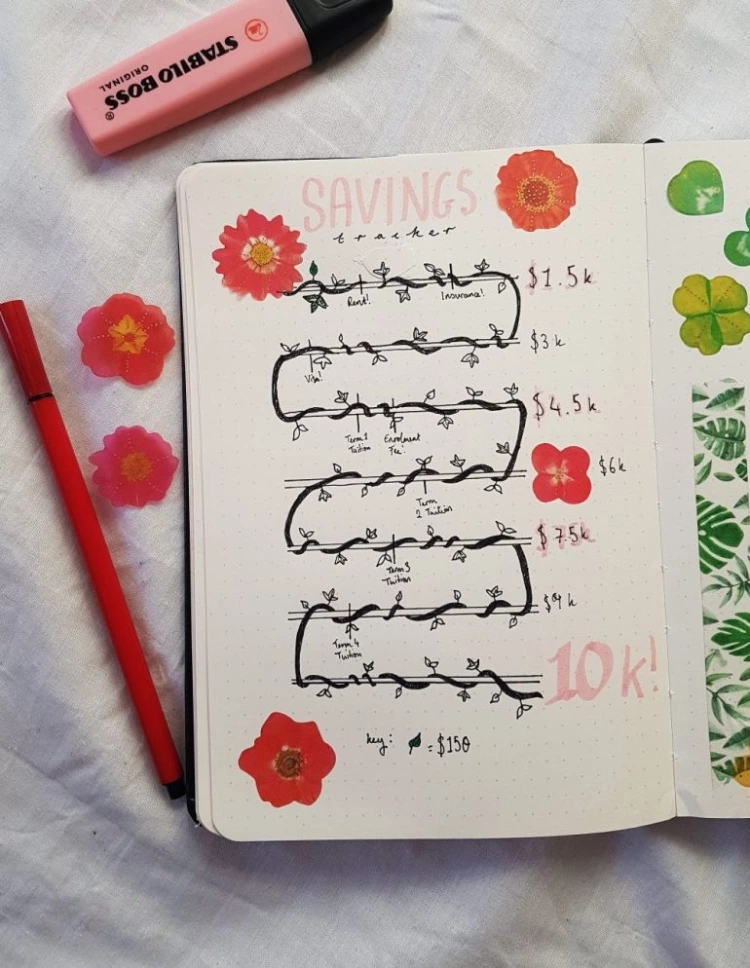 STABILO BOSS®
ORIGINAL
SAVINGS
tracker
$1.5k
Rent!
Insurance!
$3k
Visa!
$4.5k
Term 1
Tuition
Enrolment
Fee!
$6k
Term
2 Tuition
$7.5k
Term 3
Tuition
$9k
Term 4
Tuition
10k!
key: = $150